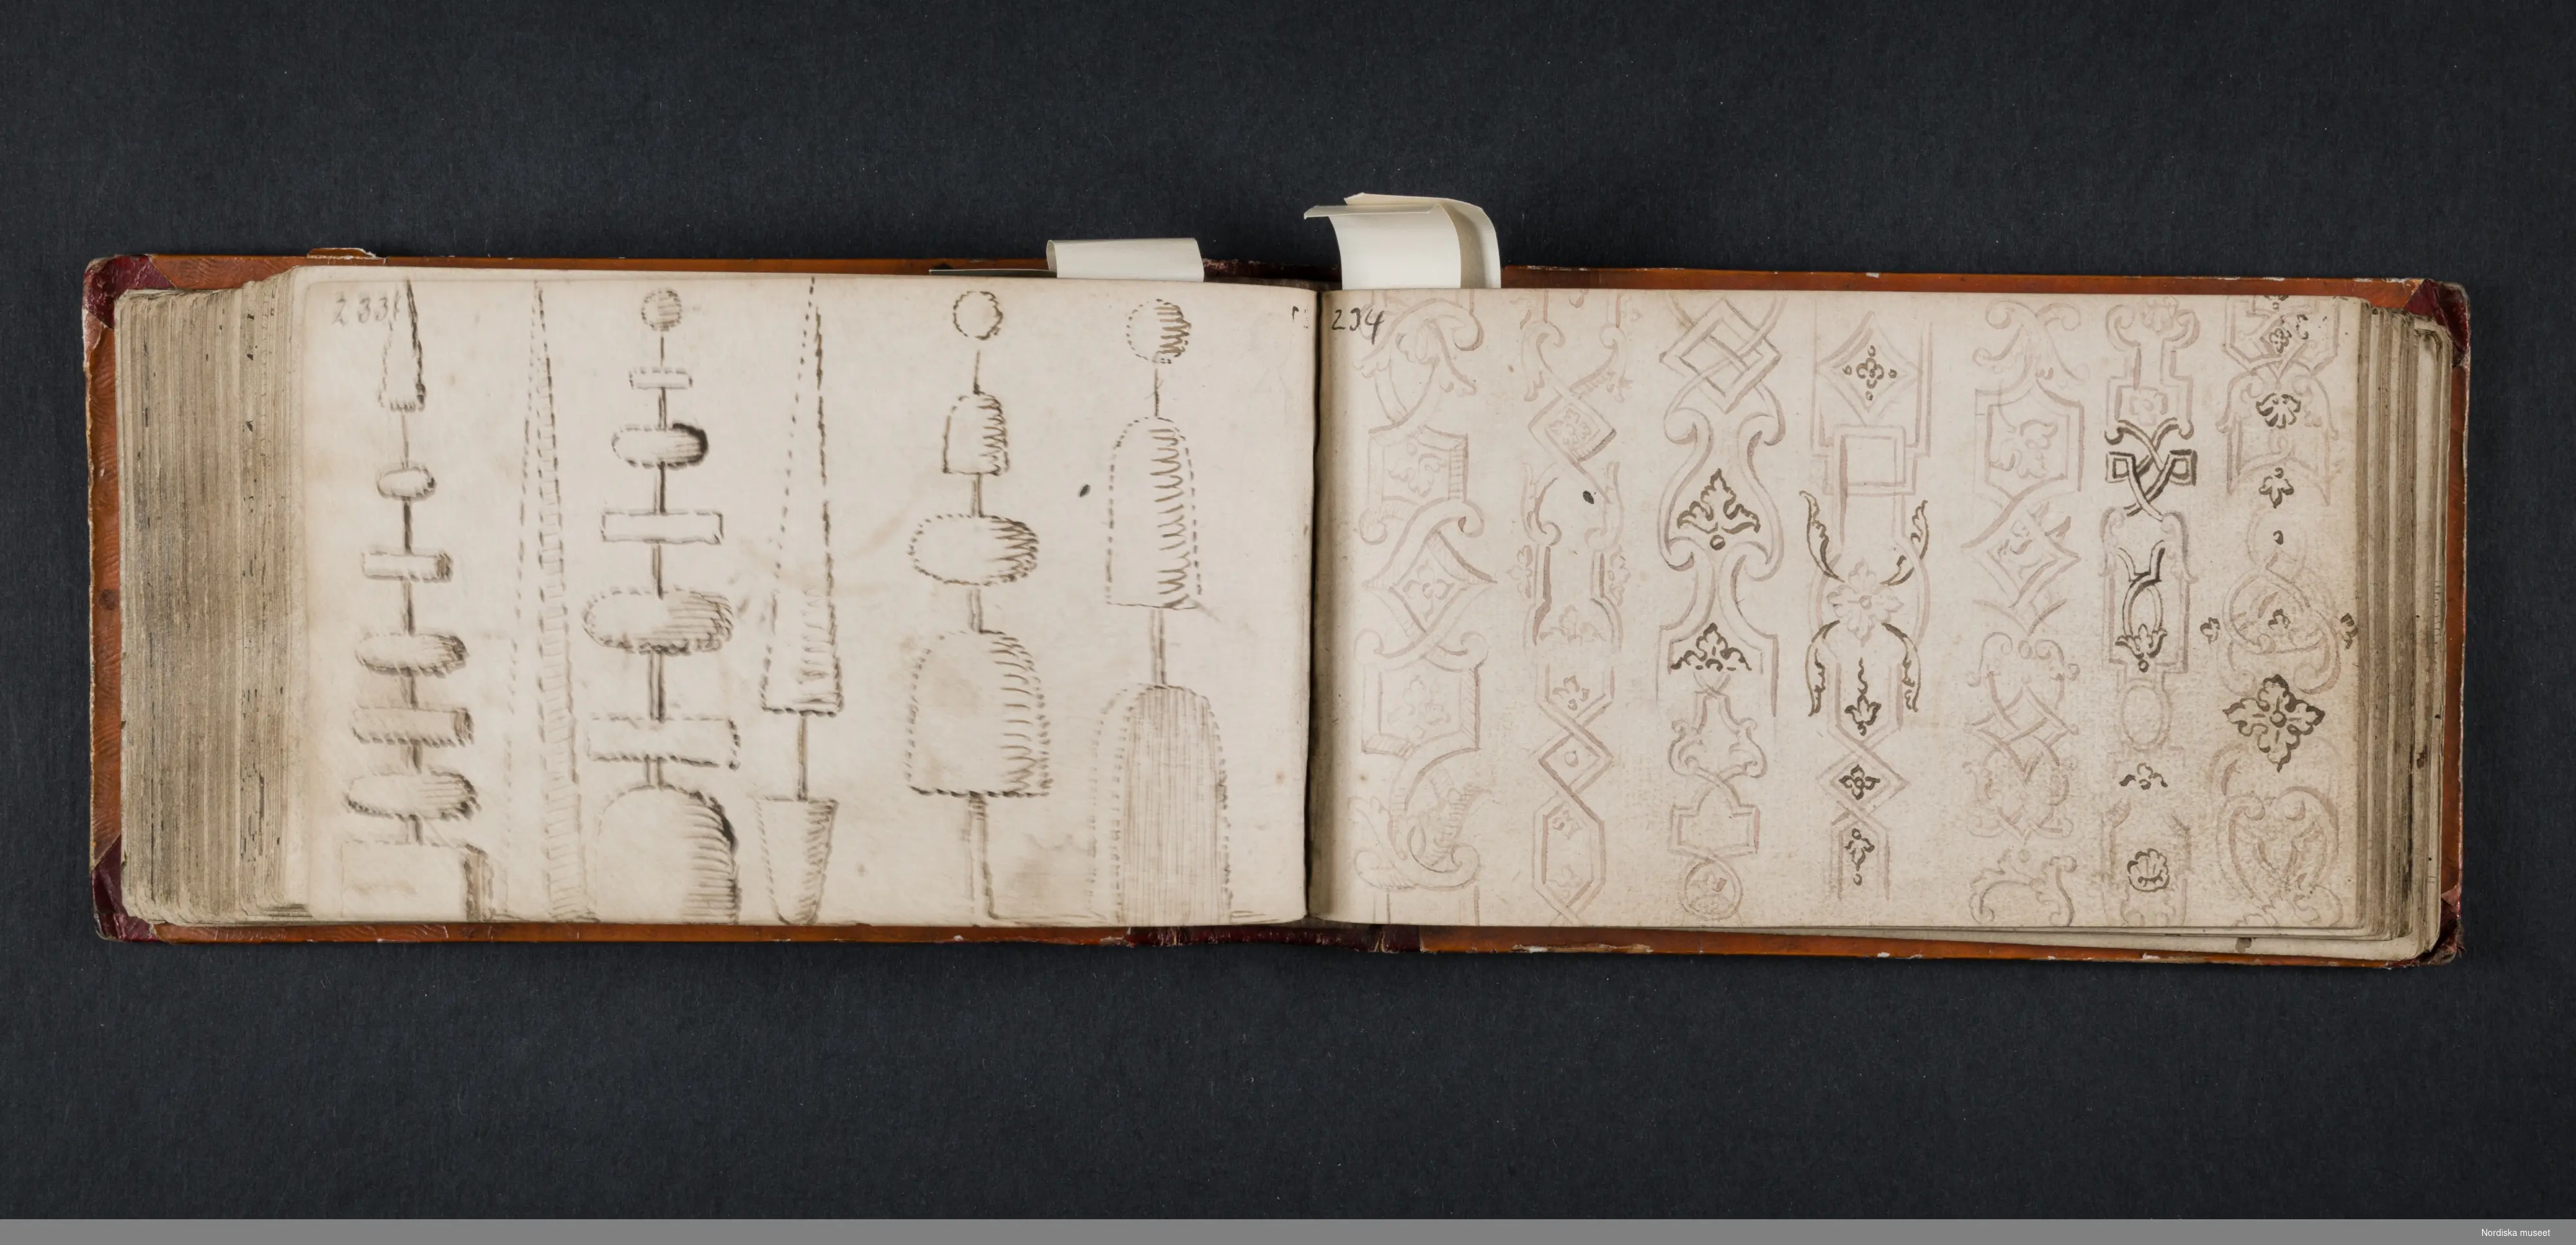 233
234
Nordiska museet